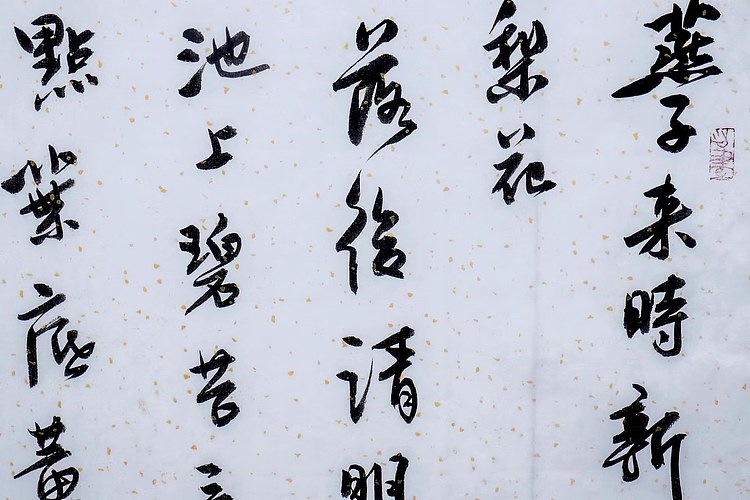 燕子来時新
梨花
落後清明
池上碧苔三
點葉底黃